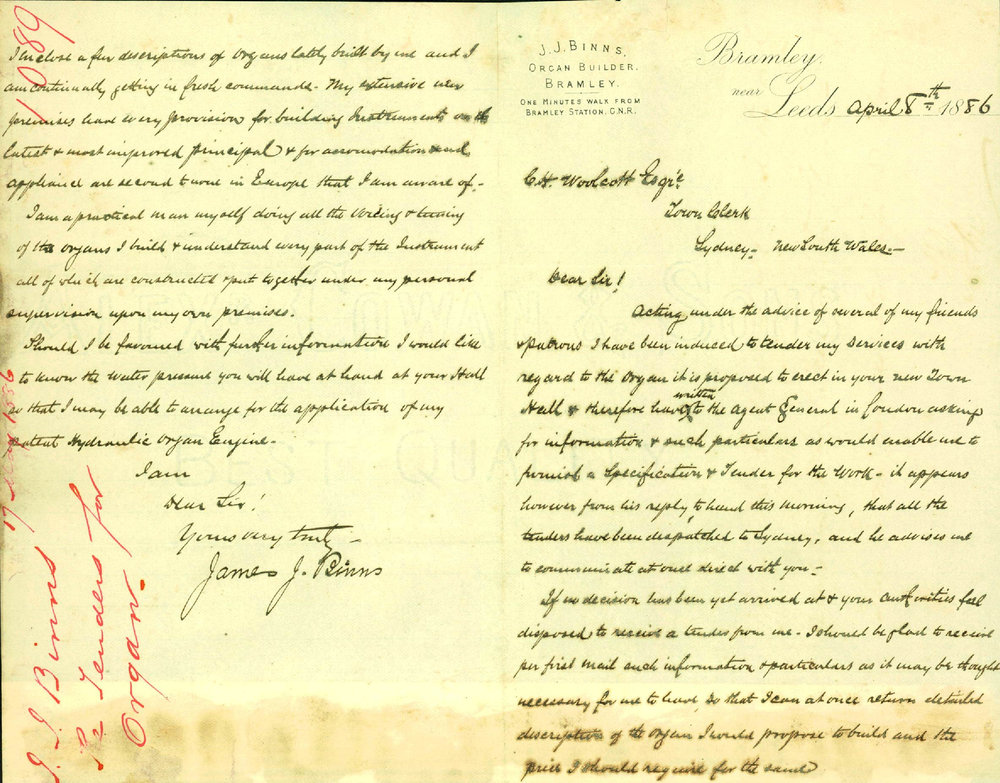 J.J. BINNS,
ORGAN BUILDER.
BRAMLEY.
ONE MINUTES WALK FROM
BRAMLEY STATION. G.N.R.
Bramley.
near
Leeds April 8th 1886
C.H. Woolcott Esqre
Town Clerk
Sydney - New South Wales -
Dear Sir!
Acting under the advice of several of my friends
& patrons I have been induced to tender my services with
regard to the Organ it is proposed to erect in your new Town
Hall & therefore have written to the Agent General in London asking
for information & such particulars as would enable me to
furnish a Specification & Tender for the Work - it appears
however from his reply to hand this morning, that all the
tenders have been despatched to Sydney, and he advises me
to communicate at once direct with you -
If no decision has been yet arrived at & your authorities feel
disposed to receive a tender from me - I should be glad to receive
per first mail such information & particulars as it may be thought
necessary for me to have so that I can at once return detailed
description of the Organ I would propose to build and the
price I should require for the same
I inclose a few descriptions of Organs lately built by me and I
am continually getting in fresh commands - My extensive new
premises have every provision for building Instruments on the
latest & most improved principal & for accomodation &
appliance are second to none in Europe that I am aware of -
I am a practical man myself doing all the Voicing & tuning
of the organs I build & understand every part of the Instrument
all of which are constructed & put together under my personal
supervision upon my own premises.
Should I be favoured with further information I would like
to know the Water pressure you will have at hand at your Hall
so that I may be able to arrange for the application of my
patent Hydraulic Organ Engine -
I am
Dear Sir!
Yours very truly
James J. Binns
1089
17 May 1886
J. J. Binns
Re Tenders for
Organ.